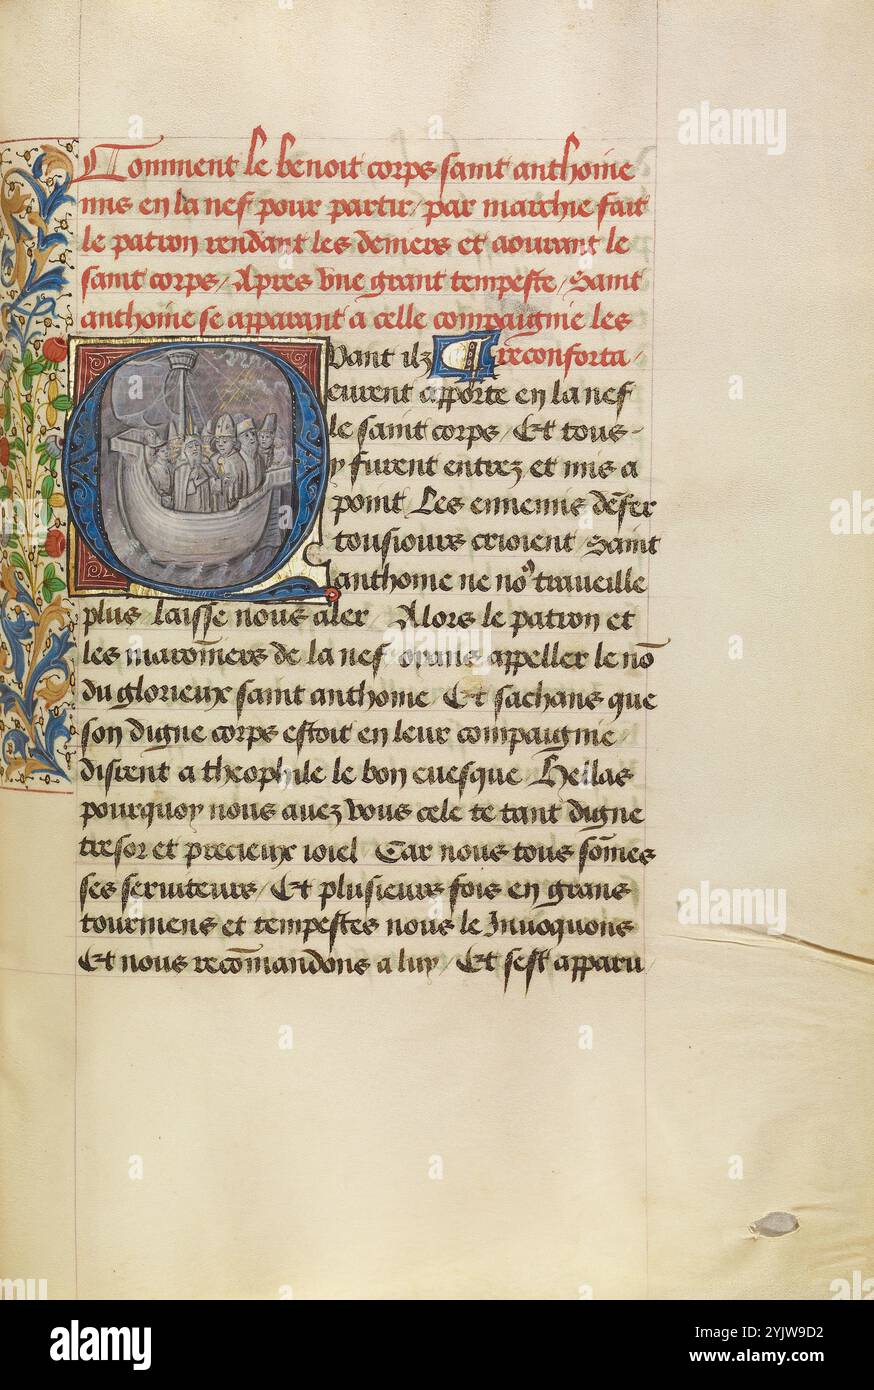 Comment le benoit corps saint anthoine
mis en la nef pour partir / par miracle fait
le patron rendant les deniers et aourant le
saint corps / Apres vne grant tempeste / Saint
anthoine se apparant a celle compaignie les
reconforta /
Quant ilz
eurent apporte en la nef
le saint corps / Et tous
y furent entrez et mis a
point Les ennemis defer
tousiours crioient Saint
anthoine ne no9 traueille
plus / laisse nous aler / Alors le patron et
les maronniers de la nef oyans appeller le nõ
du glorieux saint anthoine / Et sachans que
son digne corps estoit en leur compaignie /
disrent a theophile le bon euesque / Hellas
pourquoy nous auez vous cele te tant digne
tresor et precieux ioiel / Car nous tous sõmes
ses seruiteurs / Et plusieurs fois en grans
tourmens et tempestes nous le Inuoquons
Et nous recõmandons a luy / Et sest apparu /
alamy
Image ID: 2YJW9D2
www.alamy.com